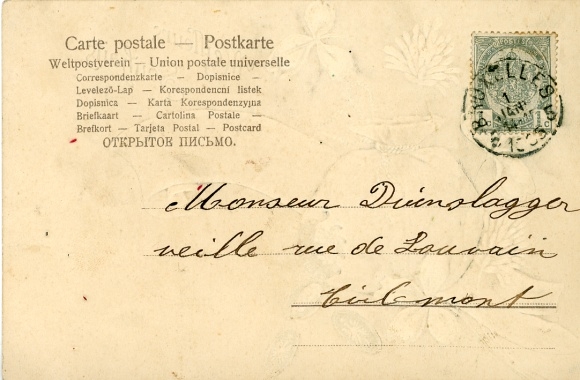 Carte postale — Postkarte
Weltpostverein — Union postale universelle
Correspondenzkarte — Dopisnice —
Levelező-Lap — Korespondencni listek
Dopisnica — Karta Korespondenzyjna
Briefkaart — Cartolina Postale —
Brefkort — Tarjeta Postal — Postcard
ОТКРЫТОЕ ПИСЬМО.
BRUXELLES 5
1
JANV
Monseur Duinslagger
veille rue de Louvain
Tirlemont